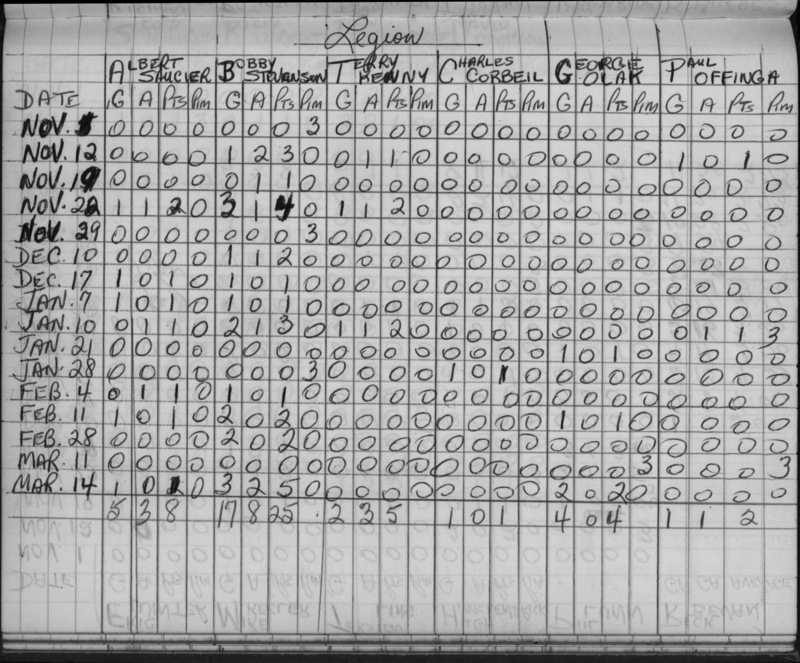 Legion
ALBERT SAUCIER BOBBY STEVENSON TERRY KENNY CHARLES CORBEIL GEORGIE OLAK PAUL OFFINGA
DATE G A Pts Pim G A Pts Pim G A Pts Pim G A Pts Pim G A Pts Pim G A Pts Pim
NOV. 5 0 0 0 0 0 0 0 3 0 0 0 0 0 0 0 0 0 0 0 0 0 0 0 0
NOV. 12 0 0 0 0 1 2 3 0 0 1 1 0 0 0 0 0 0 0 0 0 1 0 1 0
NOV. 19 0 0 0 0 0 1 1 0 0 0 0 0 0 0 0 0 0 0 0 0 0 0 0 0
NOV. 22 1 1 2 0 3 1 4 0 1 1 2 0 0 0 0 0 0 0 0 0 0 0 0 0
NOV. 29 0 0 0 0 0 0 0 3 0 0 0 0 0 0 0 0 0 0 0 0 0 0 0 0
DEC. 10 0 0 0 0 1 1 2 0 0 0 0 0 0 0 0 0 0 0 0 0 0 0 0
DEC. 17 1 0 1 0 1 0 1 0 0 0 0 0 0 0 0 0 0 0 0 0 0 0 0 0
JAN. 7 1 0 1 0 1 0 1 0 0 0 0 0 0 0 0 0 0 0 0 0 0 0 0
JAN. 10 0 1 1 0 2 1 3 0 1 1 2 0 0 0 0 0 0 0 0 0 0 1 1 3
JAN. 21 0 0 0 0 0 0 0 0 0 0 0 0 0 0 0 0 1 0 1 0 0 0 0 0
JAN. 28 0 0 0 0 0 0 0 3 0 0 0 0 1 0 1 0 0 0 0 0 0 0 0
FEB. 4 0 1 1 0 1 0 1 0 0 0 0 0 0 0 0 0 0 0 0 0 0 0 0 0
FEB. 11 1 0 1 0 2 0 2 0 0 0 0 0 0 0 0 0 1 0 1 0 0 0 0 0
FEB. 28 0 0 0 0 2 0 2 0 0 0 0 0 0 0 0 0 0 0 0 0 0 0 0 0
MAR. 11 0 0 0 0 0 0 0 0 0 0 0 0 0 0 0 0 0 0 0 3 0 0 0 3
MAR. 14 1 0 1 0 3 2 5 0 0 0 0 0 0 0 0 0 2 0 2 0 0 0 0 0
5 3 8 17 8 25 2 3 5 1 0 1 4 0 4 1 1 2